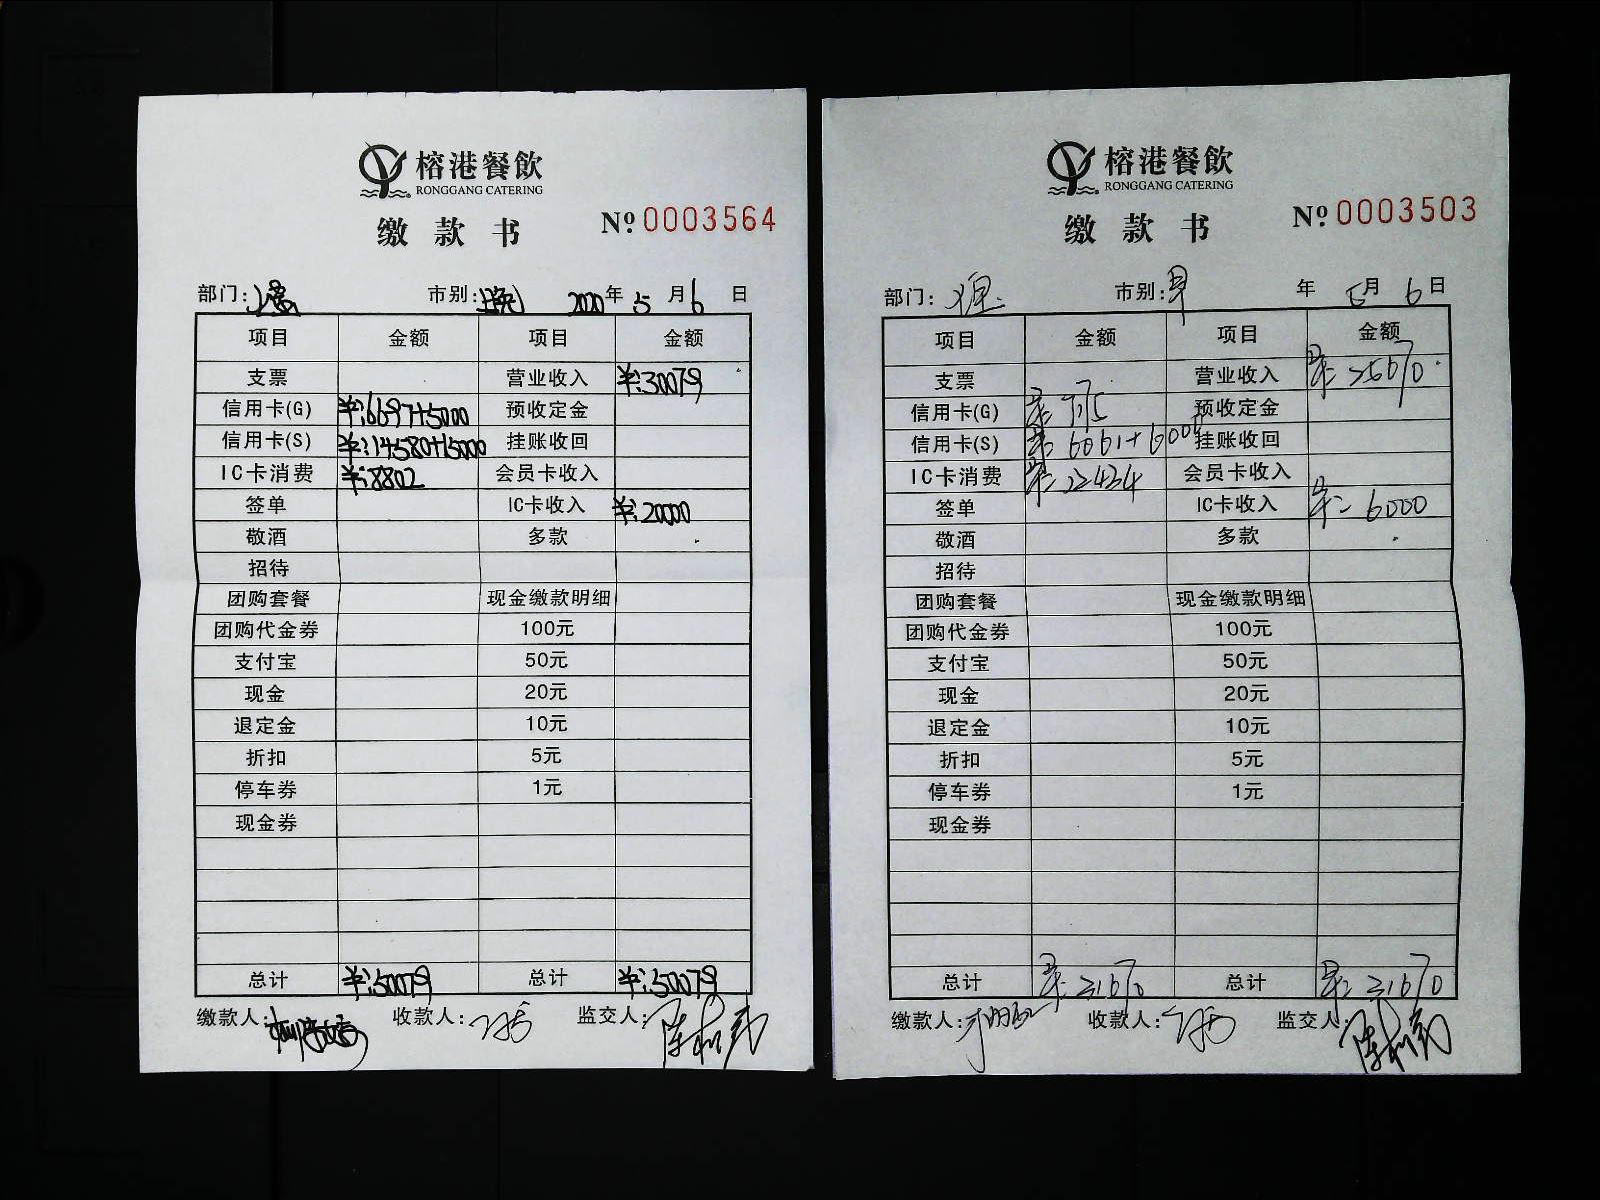 榕港餐飲
RONGGANG CATERING
缴款书 № 0003564
部门: 市别:晚 2020年5月6日
项目 金额 项目 金额
支票 营业收入 ¥:30079
信用卡(G) ¥:6697+5000 预收定金
信用卡(S) ¥:14580+15000 挂账收回
IC卡消费 ¥:8802 会员卡收入
签单 IC卡收入 ¥:20000
敬酒 多款
招待
团购套餐 现金缴款明细
团购代金券 100元
支付宝 50元
现金 20元
退定金 10元
折扣 5元
停车券 1元
现金券
总计 ¥:50079 总计 ¥:50079
缴款人: 收款人: 监交人:
榕港餐飲
RONGGANG CATERING
缴款书 № 0003503
部门: 市别:早 年5月6日
项目 金额 项目 金额
支票 营业收入
信用卡(G) 预收定金
信用卡(S) 6061+6000 挂账收回
IC卡消费 22434 会员卡收入
签单 IC卡收入 6000
敬酒 多款
招待
团购套餐 现金缴款明细
团购代金券 100元
支付宝 50元
现金 20元
退定金 10元
折扣 5元
停车券 1元
现金券
总计 总计
缴款人: 收款人: 监交人: